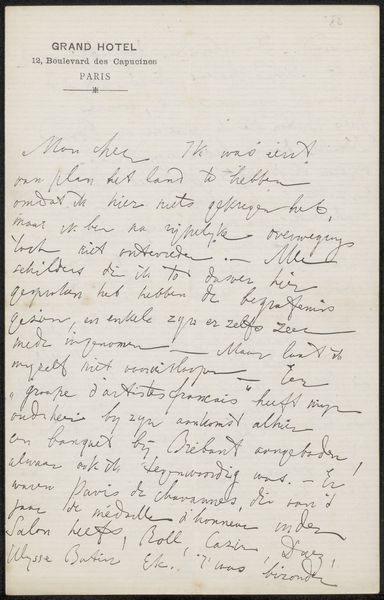 82
GRAND HOTEL
12, Boulevard des Capucines
PARIS
Mon cher Ik was eerst
van plan het land te hebben
omdat ik hier niets gekregen heb,
maar ik ben na rijpelijke overweging
toch niet ontevreden. — Alle
schilders die ik tot dusver hier
gesproken heb hebben de begrafenis
gezien, en enkele zijn er zelfs zeer
mede ingenomen — Maar laat ik
myself niet vooruitloopen — Een
"groupe d'artistes francais" heeft mijn
oudsheer bij zijn aankomst alhier
een banquet bij Brébant aangeboden!
alwaar ook ik tegenwoordig was. — Er
waren Puvis de Chavannes, die van 't
jaar de médaille d'honneur in den
Salon heeft, Roll! Cazin, Duez!
Ulysse Butin Etc. 't was bizonder